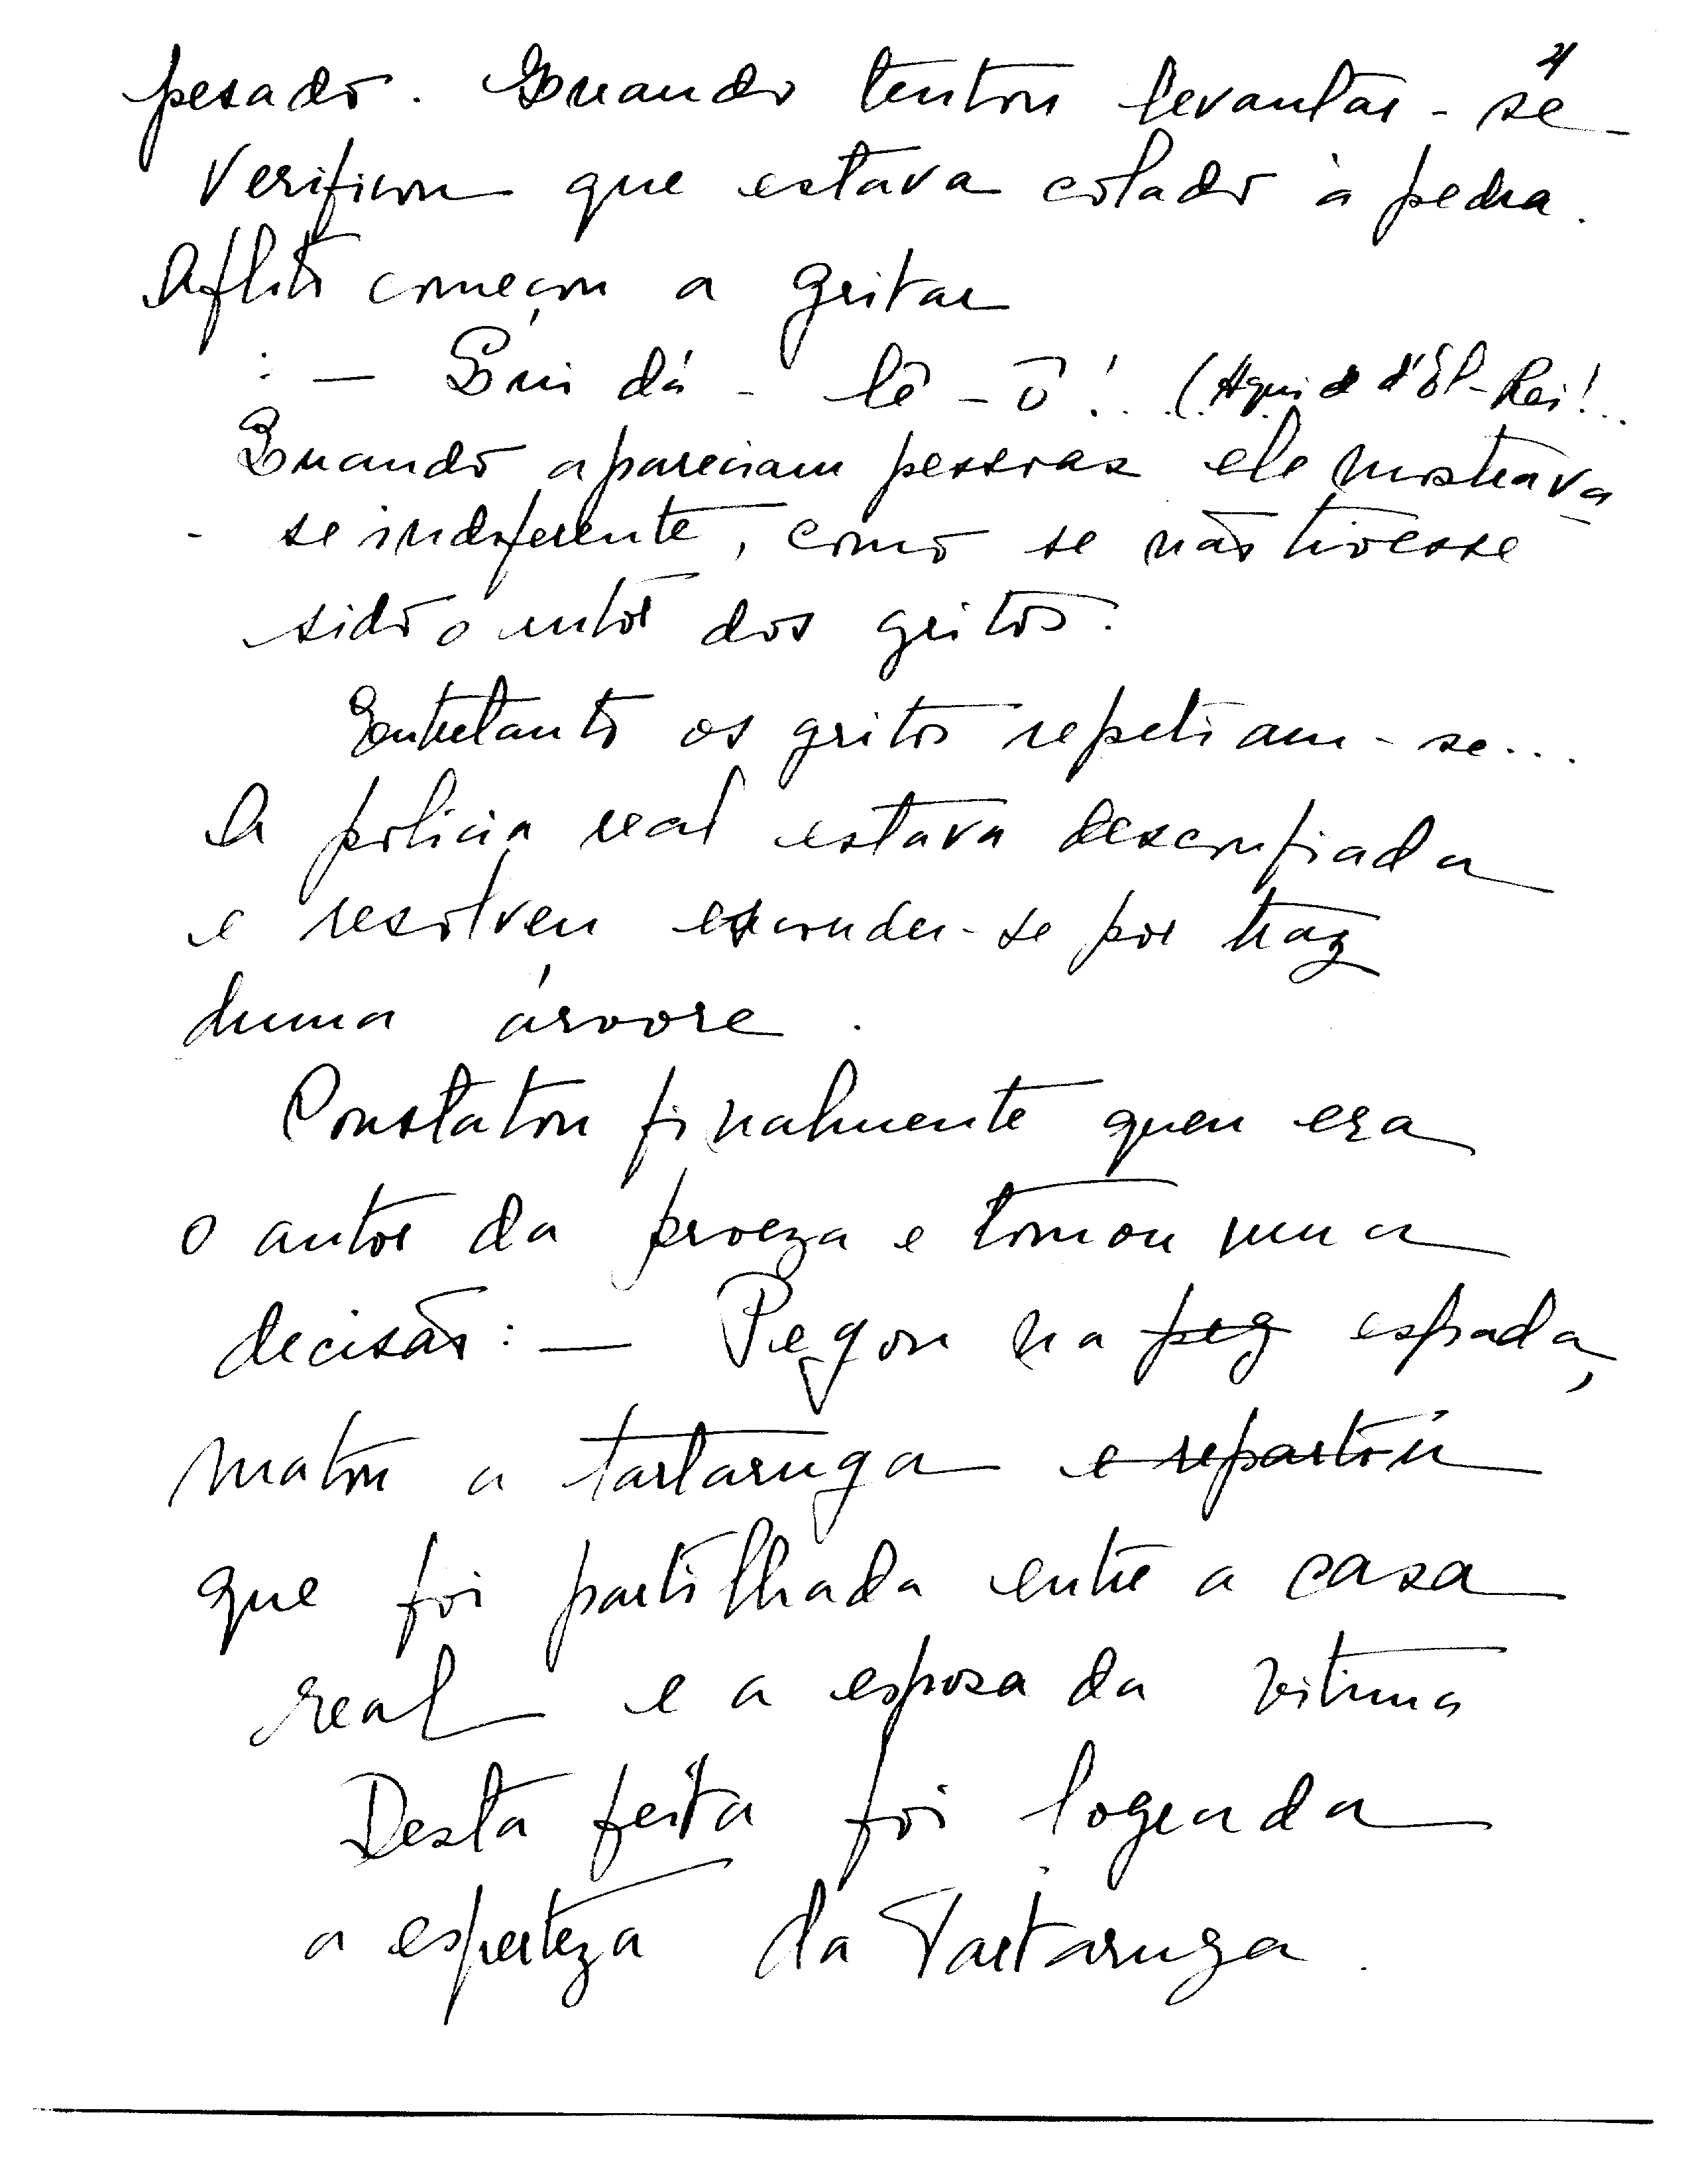 4
pesado. Quando tentou levantar-se-
Verificou que estava colado à pedra.
Aflito começou a gritar
: — Qui dá - lê - ô!.. (Aqui d'El-Rei!..
Quando apareciam pessoas ele mostrava
- se indiferente, como se não tivesse
sido o autor dos gritos.
Entretanto os gritos repetiam-se...
A policia real estava desconfiada
e resolveu esconder-se por traz
duma árvore.
Constatou finalmente quem era
o autor da proeza e tomou uma
decisão: — Pegou na peg espada,
matou a tartaruga e repartiu
que foi partilhada entre a casa
real e a esposa da vitima
Desta feita foi lograda
a esperteza da Tartaruga.